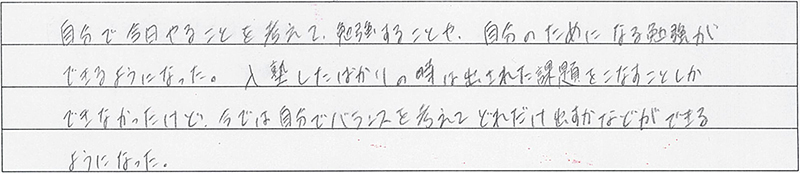 自分で今日やることを考えて、勉強することや、自分のためになる勉強が
できるようになった。入塾したばかりの時は出された課題をこなすことしか
できなかったけど、今では自分でバランスを考えてどれだけ出すかなどができる
ようになった。